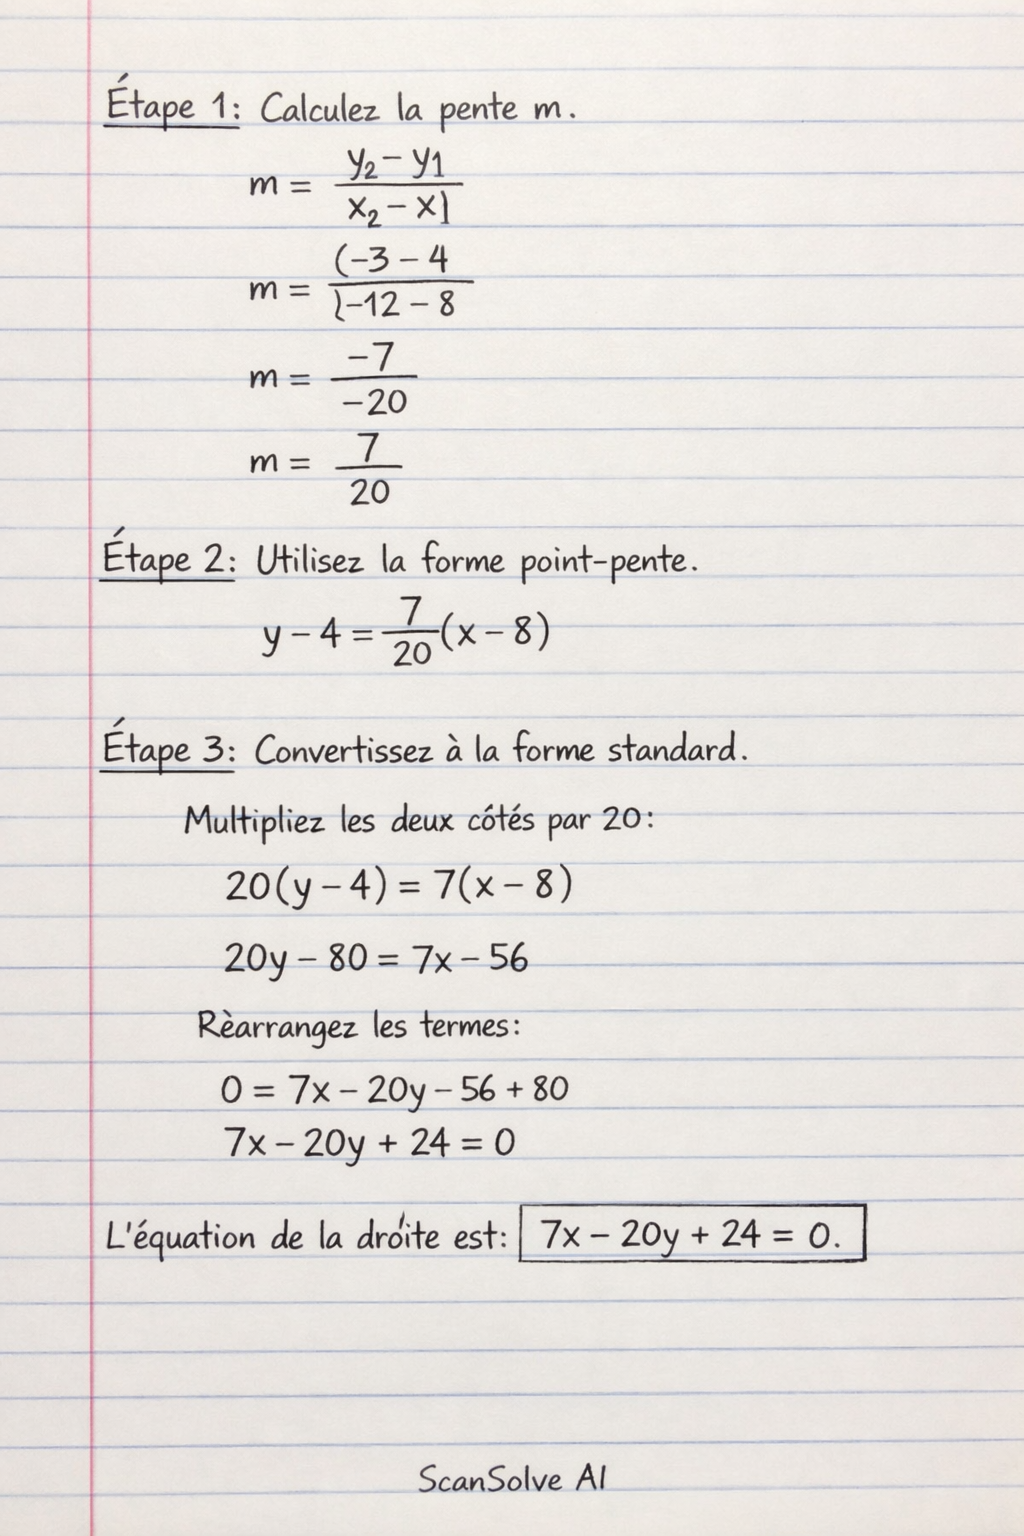 Étape 1: Calculez la pente m.
m = y₂ - y1 / x₂ - x1
m = (-3 - 4 / (-12 - 8
m = -7 / -20
m = 7 / 20
Étape 2: Utilisez la forme point-pente.
y - 4 = 7/20 (x - 8)
Étape 3: Convertissez à la forme standard.
Multipliez les deux cótés par 20:
20(y - 4) = 7(x - 8)
20y - 80 = 7x - 56
Rèarrangez les termes:
0 = 7x - 20y - 56 + 80
7x - 20y + 24 = 0
L'équation de la dróite est: 7x - 20y + 24 = 0.
ScanSolve AI